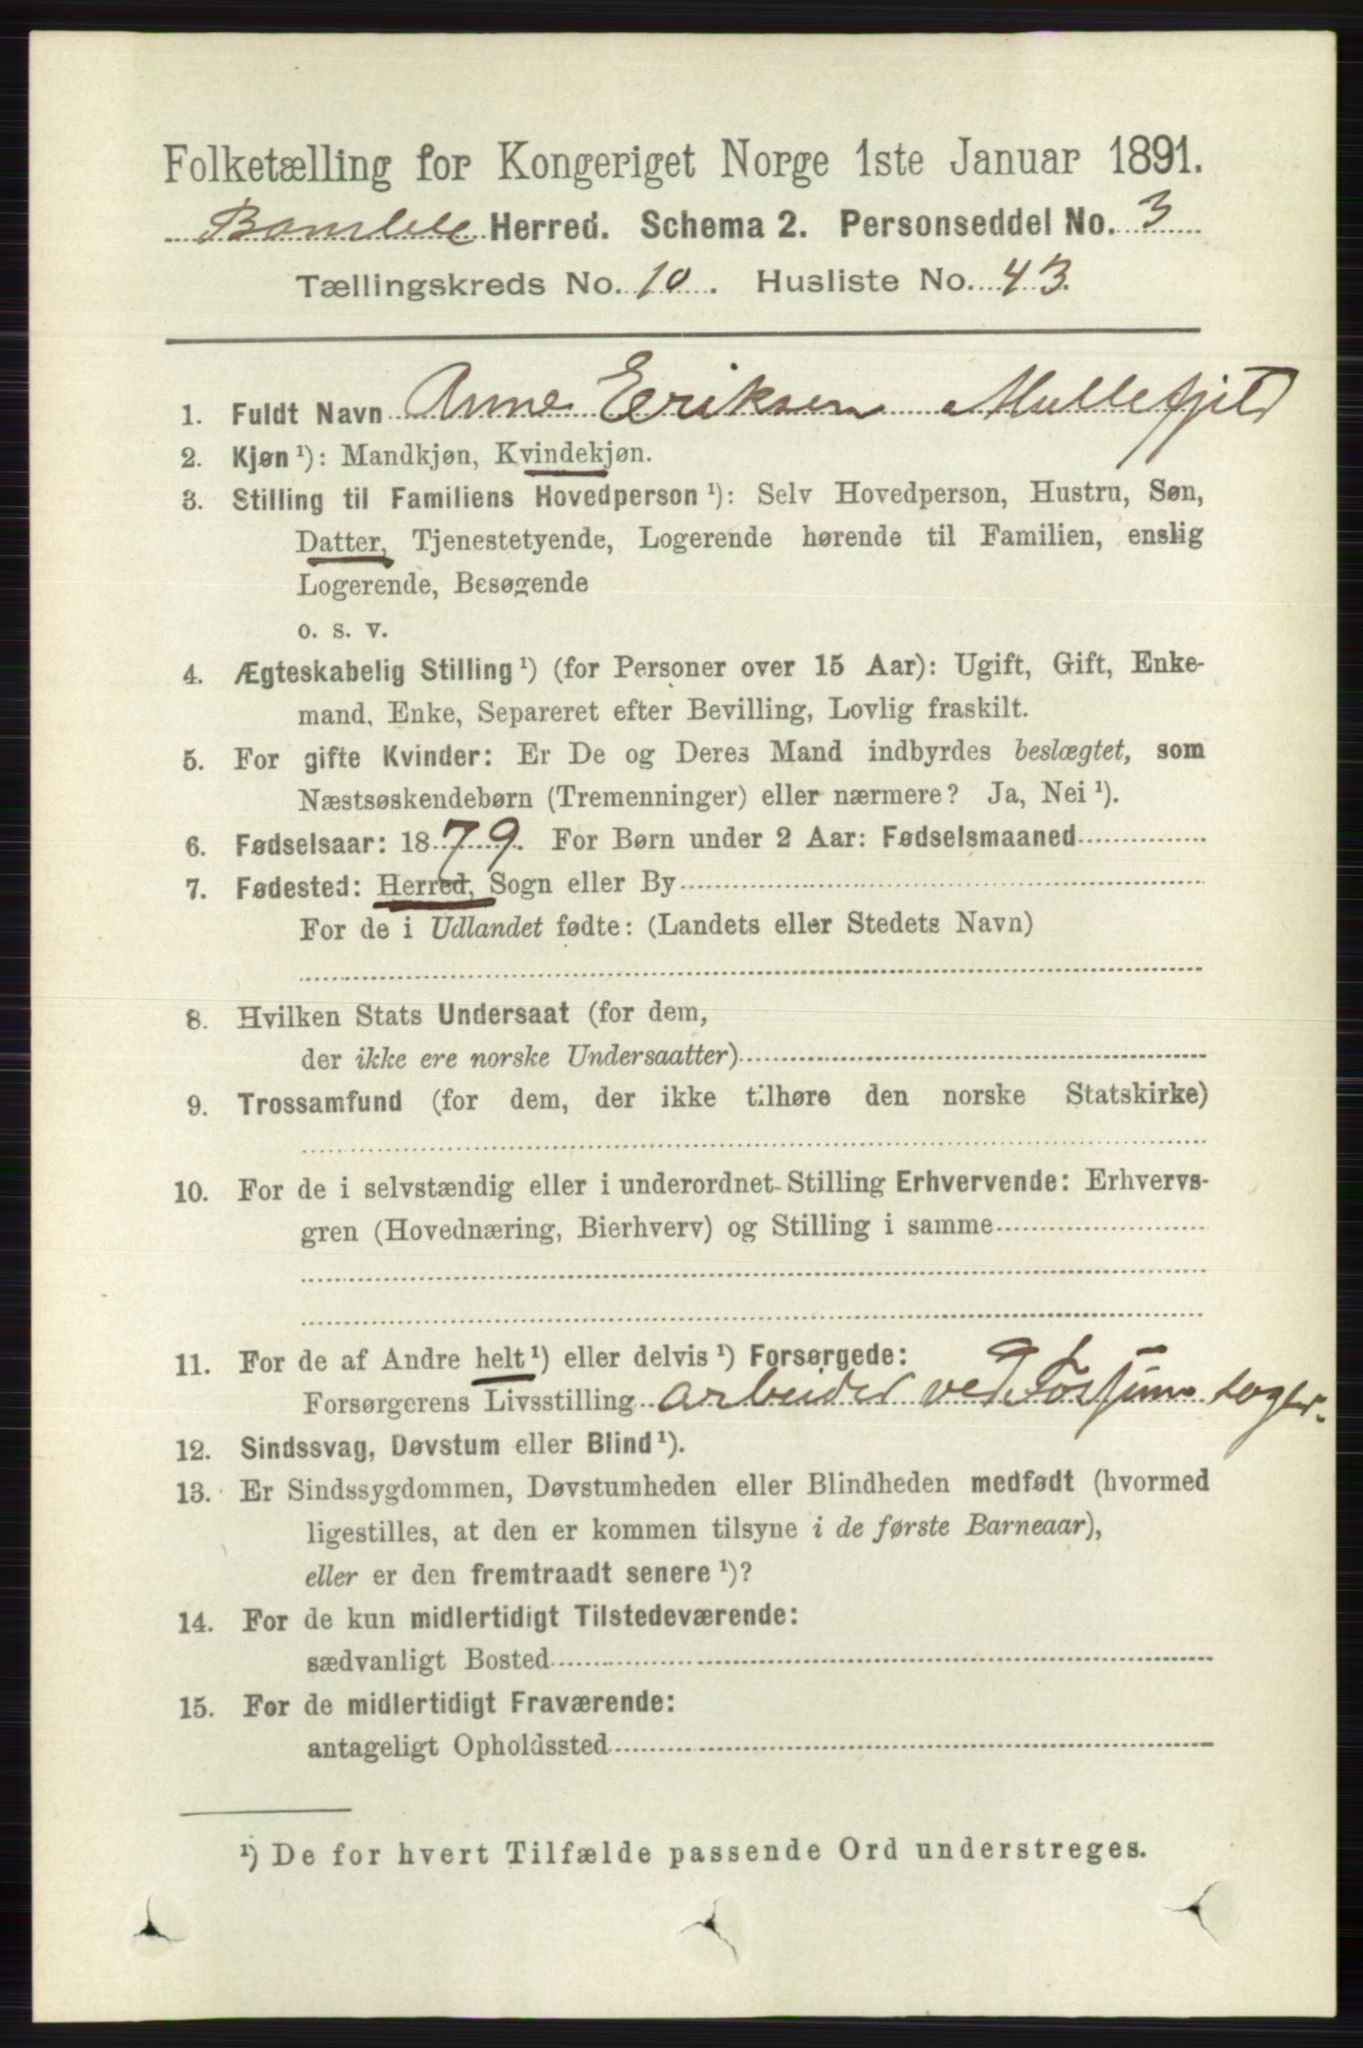 Folketælling for Kongeriget Norge 1ste Januar 1891.
Bamble Herred. Schema 2. Personseddel No. 3
Tællingskreds No. 10. Husliste No. 43.
1. Fuldt Navn Anne Eriksen Mullefjeld
2. Kjøn ¹): Mandkjøn, Kvindekjøn.
3. Stilling til Familiens Hovedperson ¹): Selv Hovedperson, Hustru, Søn,
Datter, Tjenestetyende, Logerende hørende til Familien, enslig
Logerende, Besøgende
o. s. v.
4. Ægteskabelig Stilling ¹) (for Personer over 15 Aar): Ugift, Gift, Enke-
mand, Enke, Separeret efter Bevilling, Lovlig fraskilt.
5. For gifte Kvinder: Er De og Deres Mand indbyrdes beslægtet, som
Næstsøskendebørn (Tremenninger) eller nærmere? Ja, Nei ¹).
6. Fødselsaar: 1879. For Børn under 2 Aar: Fødselsmaaned
7. Fødested: Herred, Sogn eller By
For de i Udlandet fødte: (Landets eller Stedets Navn)
8. Hvilken Stats Undersaat (for dem,
der ikke ere norske Undersaatter)
9. Trossamfund (for dem, der ikke tilhøre den norske Statskirke)
10. For de i selvstændig eller i underordnet Stilling Erhvervende: Erhvervs-
gren (Hovednæring, Bierhverv) og Stilling i samme
11. For de af Andre helt ¹) eller delvis ¹) Forsørgede:
Forsørgerens Livsstilling arbeider ved
12. Sindssvag, Døvstum eller Blind ¹).
13. Er Sindssygdommen, Døvstumheden eller Blindheden medfødt (hvormed
ligestilles, at den er kommen tilsyne i de første Barneaar),
eller er den fremtraadt senere ¹)?
14. For de kun midlertidigt Tilstedeværende:
sædvanligt Bosted
15. For de midlertidigt Fraværende:
antageligt Opholdssted
¹) De for hvert Tilfælde passende Ord understreges.